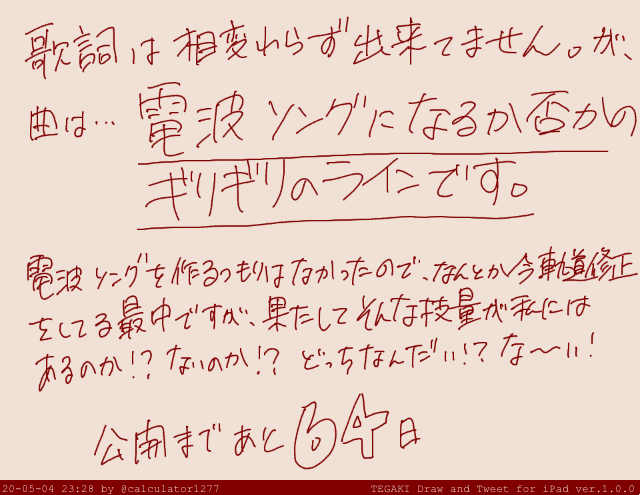 歌詞は相変わらず出来てません。が、
曲は…電波ソングになるか否かの
ギリギリのラインです。
電波ソングを作るつもりはなかったので、なんとか今軌道修正
をしてる最中ですが、果たしてそんな技量が私には
あるのか!?ないのか!?どっちなんだい!?な〜い!
公開まであと64日
20-05-04 23:28 by @calculator1277
TEGAKI Draw and Tweet for iPad ver.1.0.0